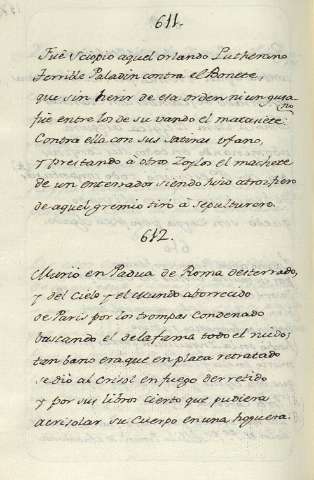 611.
Fuè Sciopio aquel orlando Lutherano
Terrible Paladin contra el Bonete,
que sin herir de esa orden ni un gusa-
no
fuè entre los de su vando el matasiete:
Contra ella con sus Satiras ufano,
y prestando à otro Zoylos el machete
de un enterrador siendo hijo atroz, fiero
de aquel gremio tirò à Sepulturero.
612.
Muriò en Padua de Roma desterrado,
y del Cielo y el Mundo aborrecido
de Paris por los trompas Condenado
buscando el de la fama todo el ruido;
tan bano era que en plata retratado
se diò al Crisol en fuego derretido
y por sus libros cierto que pudiera
acrisolar su Cuerpo en una hoguera.